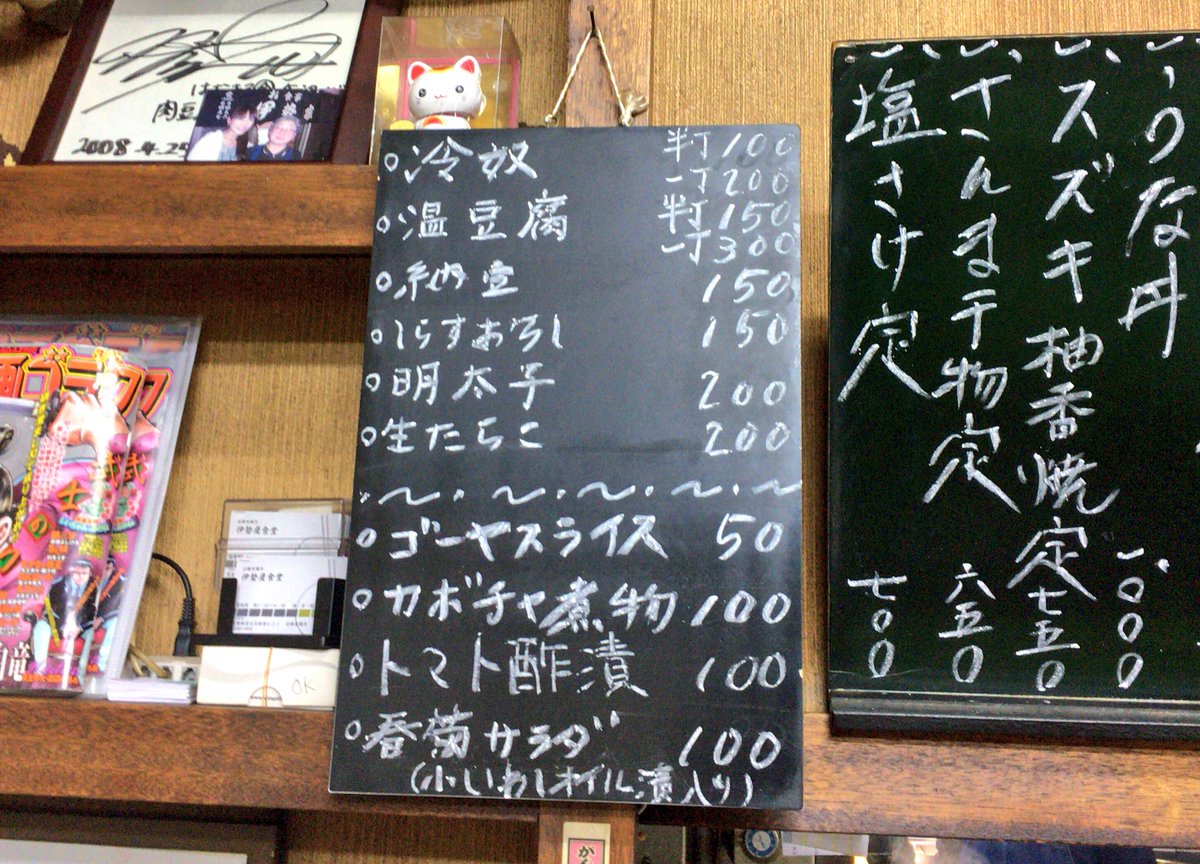 2008.4.25
お食事
○冷奴 半丁100
一丁200
○温豆腐 半丁150
一丁300
○納豆 150
○しらすおろし 150
○明太子 200
○生たらこ 200
〜・〜・〜・〜・〜
○ゴーヤスライス 50
○カボチャ煮物 100
○トマト酢漬 100
○春菊サラダ 100
(小いわしオイル漬入り)
うな丼 一、〇〇〇
スズキ柚香焼定 七五〇
さんま干物定 六五〇
塩さけ定 七〇〇
伊勢屋食堂
伊勢屋食堂
OK